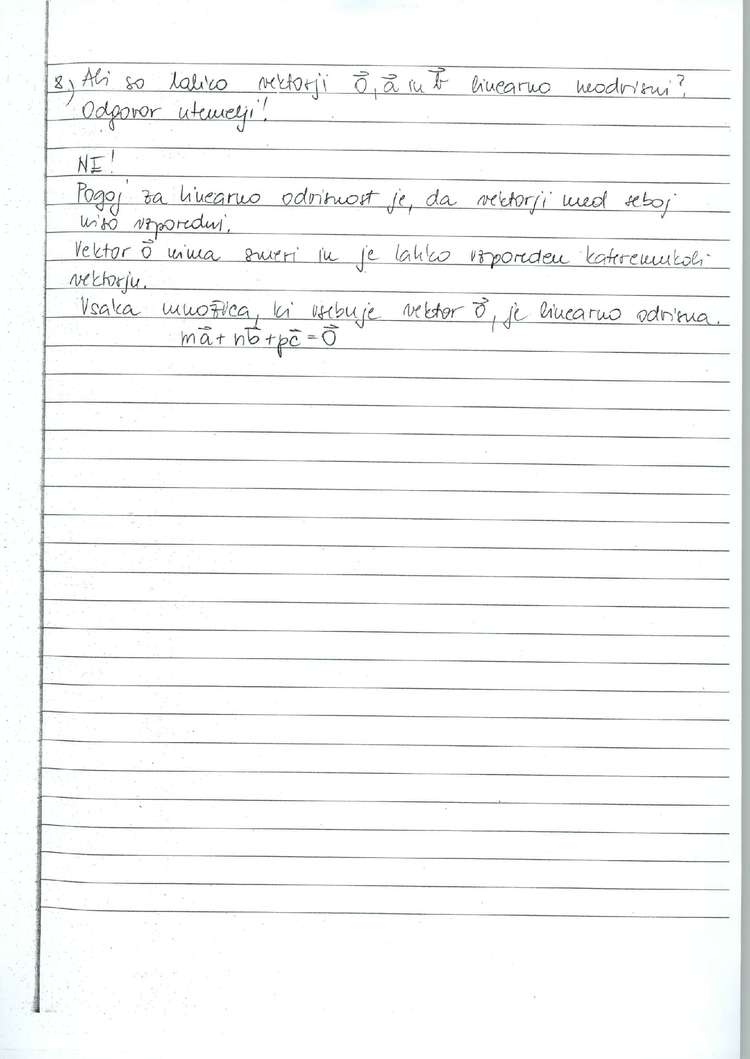 8) Ali so lahko vektorji 0⃗, a⃗ in b⃗ linearno neodvisni?
Odgovor utemelji!
NE!
Pogoj za linearno odvisnost je, da vektorji med seboj
niso vzporedni.
Vektor 0⃗ nima smeri in je lahko vzporeden kateremukoli
vektorju.
Vsaka množica, ki vsebuje vektor 0⃗, je linearno odvisna.
ma⃗ + nb⃗ + pc⃗ = 0⃗